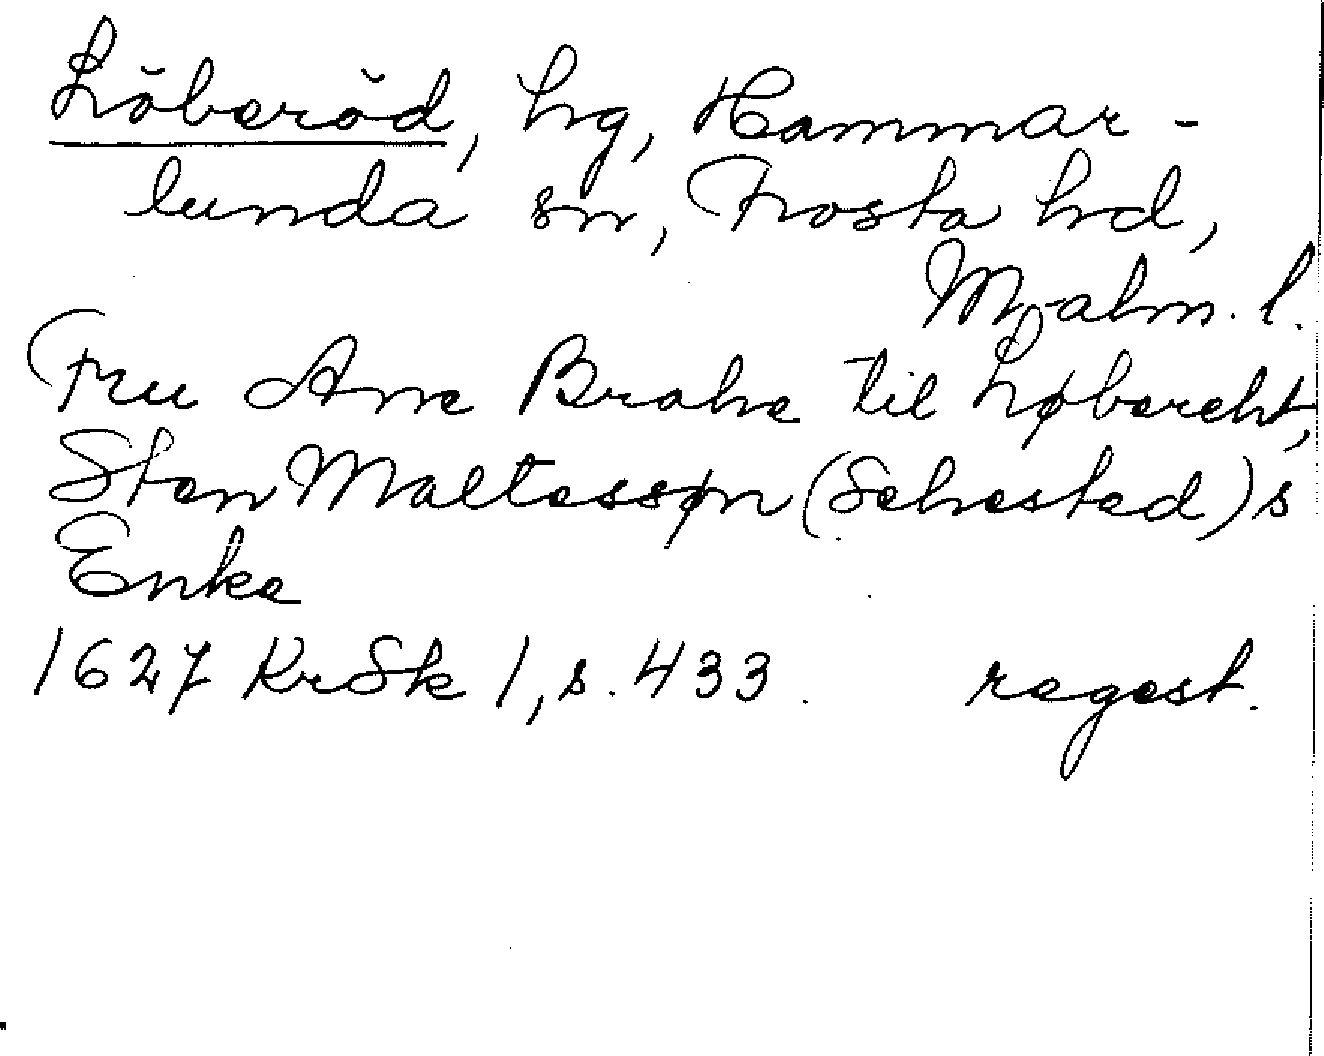 Löberöd, hg, Hammar-
lunda sn, Frosta hd,
Malm. l.
Fru Anne Brahe til Løbereht,
Sten Maltessøn (Sehested)s
Enke
1627 KrSk 1, s. 433. regest.